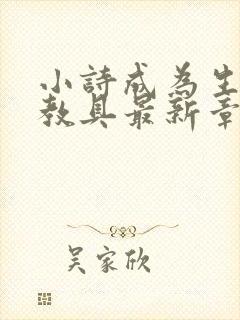 小詩成為生
教具最新章
吳家欣